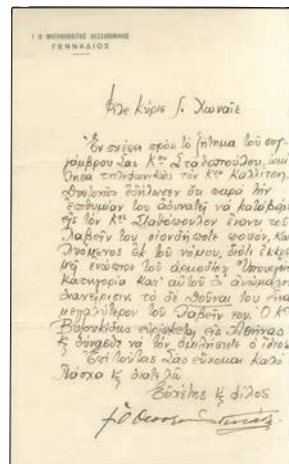 Ο ΜΗΤΡΟΠΟΛΙΤΗΣ ΘΕΣΣΑΛΟΝΙΚΗΣ
ΓΕΝΝΑΔΙΟΣ
Φίλε Κύριε Γ. Χωναῖε
Ἐν σχέσει πρὸς τὸ ζήτημα τοῦ συγ-
γάμβρου Σας Κου Σταθοπούλου, ὡμί-
λησα τηλεφωνικῶς τὸν Κον Καλλίτσην.
Δυστυχῶς ἐδήλωσεν ὅτι παρὰ τὴν
ἐπιθυμίαν του ἀδυνατεῖ νὰ καταβάλῃ
εἰς τὸν Κον Σταθόπουλον ἔναντι τοῦ
λαβεῖν του οἱονδήποτε ποσόν, κω-
λυόμενος ἐκ τοῦ νόμου, διότι ἐκκρε-
μεῖ ἐνώπιον τοῦ ἁρμοδίου Ὑπουργείου
κατηγορία κατ' αὐτοῦ δι' ἀνώμαλον
διαχείρισιν, τὸ δὲ δοῦναι του εἶναι
μεγαλύτερον τοῦ λαβεῖν του. Ὁ Κος
εὑρίσκεται εἰς Ἀθήνας
κ δύνασθε νὰ τὸν ὁμιλήσητε ὁ ἴδιος.
Ἐπὶ τούτοις Σας εὔχομαι Καλὸ
Πάσχα κ διατελῶ
Εὐχέτης κ φίλος